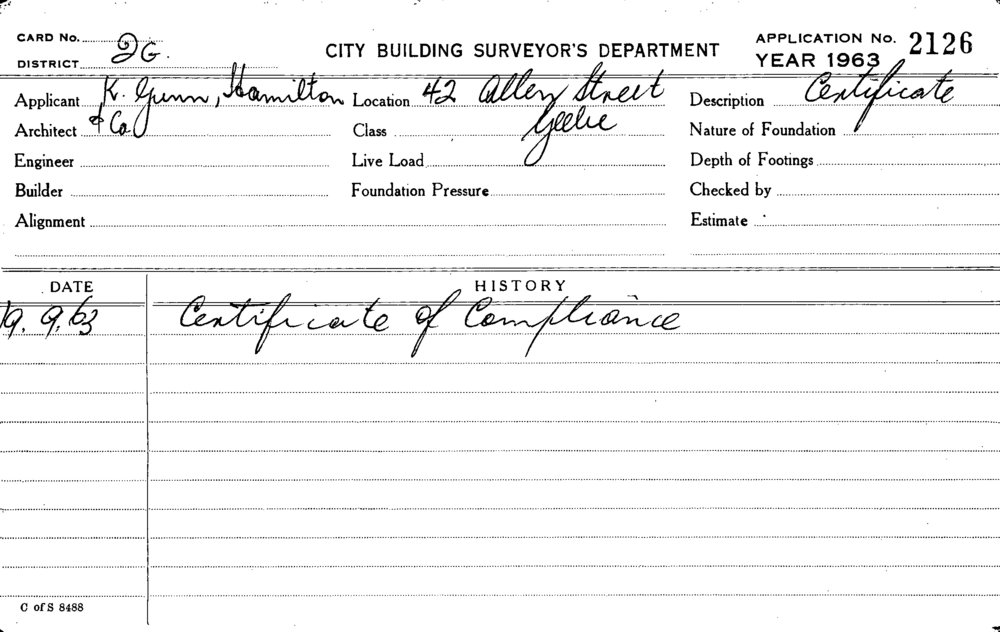 CARD No. 2G.
DISTRICT
CITY BUILDING SURVEYOR'S DEPARTMENT
APPLICATION No. 2126
YEAR 1963
Applicant K. Gunn, Hamilton Location 42 Allen Street Description Certificate
Architect & Co. Class Glebe Nature of Foundation
Engineer Live Load Depth of Footings
Builder Foundation Pressure Checked by
Alignment Estimate
DATE HISTORY
19.9.63 Certificate of Compliance
C of S 8488